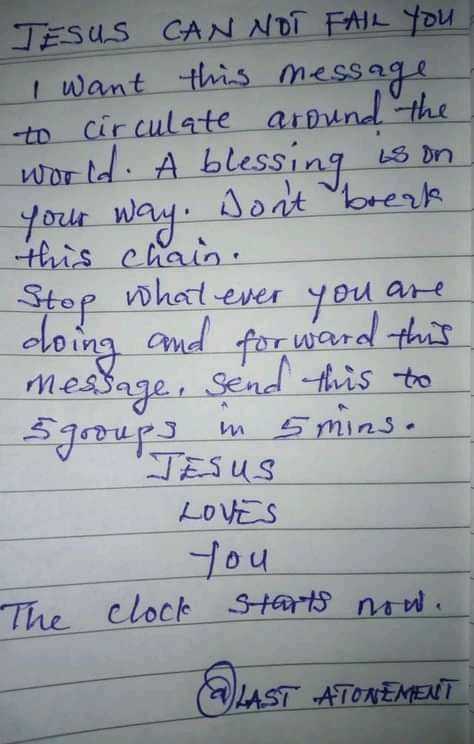 JESUS CAN NOT FAIL YOU
I want this message
to circulate around the
world. A blessing is on
your way. Don't break
this chain.
Stop whatever you are
doing and forward this
message. Send this to
5 groups in 5 mins.
JESUS
LOVES
You
The clock starts now.
@LAST ATONEMENT